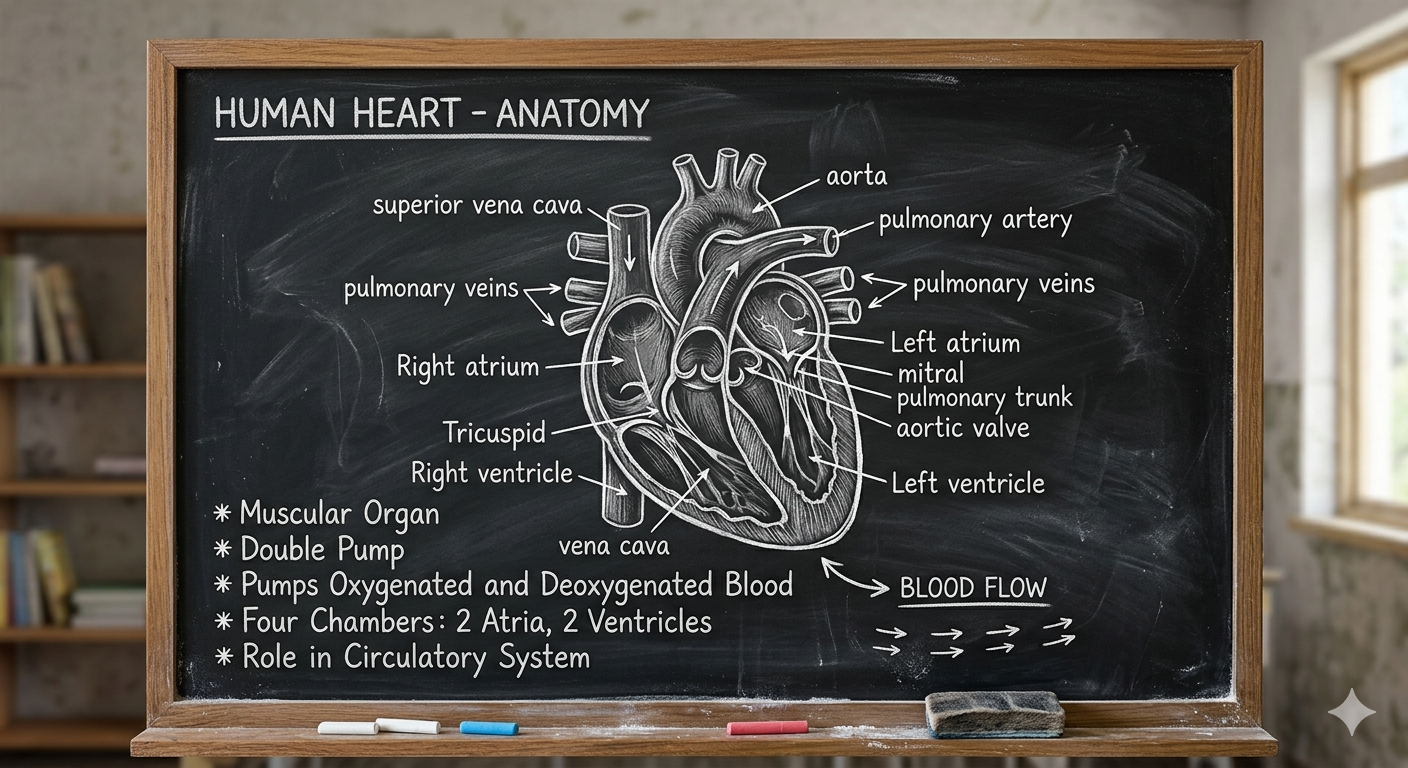 HUMAN HEART - ANATOMY
aorta
superior vena cava
pulmonary artery
pulmonary veins
pulmonary veins
Left atrium
Right atrium
mitral
pulmonary trunk
aortic valve
Tricuspid
Right ventricle
Left ventricle
vena cava
* Muscular Organ
* Double Pump
* Pumps Oxygenated and Deoxygenated Blood
* Four Chambers: 2 Atria, 2 Ventricles
* Role in Circulatory System
BLOOD FLOW